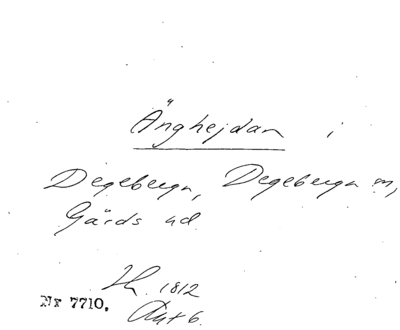 Änghejdan i
Degeberga, Degeberga sn,
Gärds hd
1812
Nr 7710.